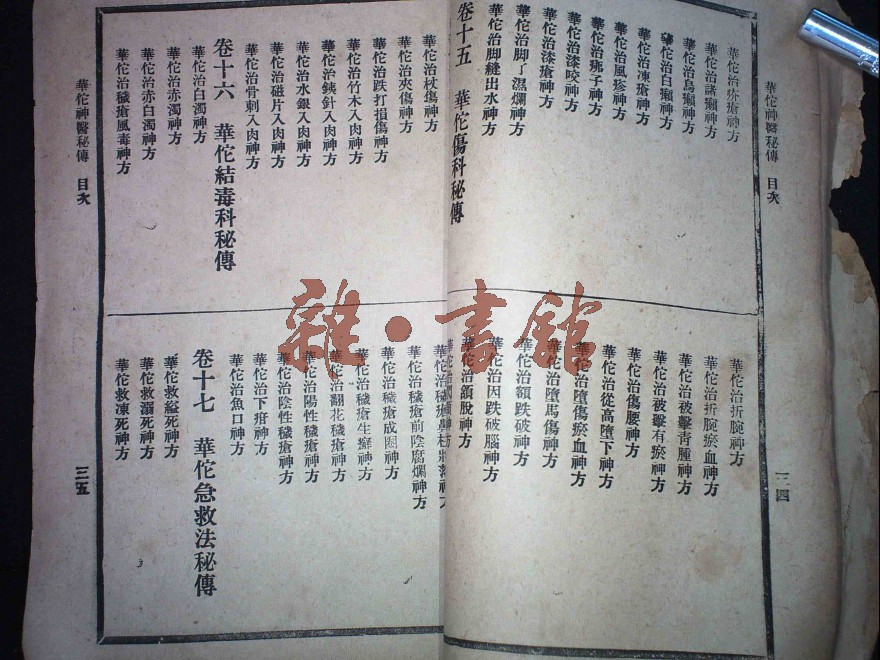 華佗神醫秘傳 目次
三四
華佗治疥瘡神方
華佗治諸癩神方
華佗治烏癩神方
華佗治白癩神方
華佗治凍瘡神方
華佗治風疹神方
華佗治痱子神方
華佗治漆咬神方
華佗治漆瘡神方
華佗治脚丫濕爛神方
華佗治脚縫出水神方
卷十五 華佗傷科秘傳
華佗治折腕神方
華佗治折腕瘀血神方
華佗治被擊青腫神方
華佗治被擊有瘀神方
華佗治傷腰神方
華佗治從高墮下神方
華佗治墮傷瘀血神方
華佗治墮馬傷神方
華佗治額跌破神方
華佗治因跌破腦神方
華佗治頷脫神方
華佗治杖傷神方
華佗治夾傷神方
華佗治跌打損傷神方
華佗治竹木入肉神方
華佗治鐵針入肉神方
華佗治水銀入肉神方
華佗治磁片入肉神方
華佗治骨刺入肉神方
卷十六 華佗結毒科秘傳
華佗治白濁神方
華佗治赤濁神方
華佗治赤白濁神方
華佗治穢瘡風毒神方
華佗治穢瘡鼻柱將落神方
華佗治穢瘡前陰腐爛神方
華佗治穢瘡成圈神方
華佗治穢瘡生癬神方
華佗治翻花穢瘡神方
華佗治陽性穢瘡神方
華佗治陰性穢瘡神方
華佗治下疳神方
華佗治魚口神方
卷十七 華佗急救法秘傳
華佗救縊死神方
華佗救溺死神方
華佗救凍死神方
華佗神醫秘傳 目次
三五
雜·書館